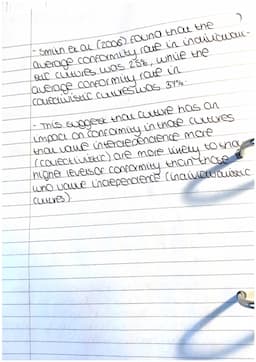 - Smith et al (2006) found that the
average conformity rate in individuali-
stic cultures was 25%, while the
average conformity rate in
collectivistic cultures was 37%.
- This suggest that culture has an
impact on conformity in those cultures
that value interdependence more
(collectivistic) are more likely to sha
higher levels of conformity than those
who value independence (individualistic
cultures)